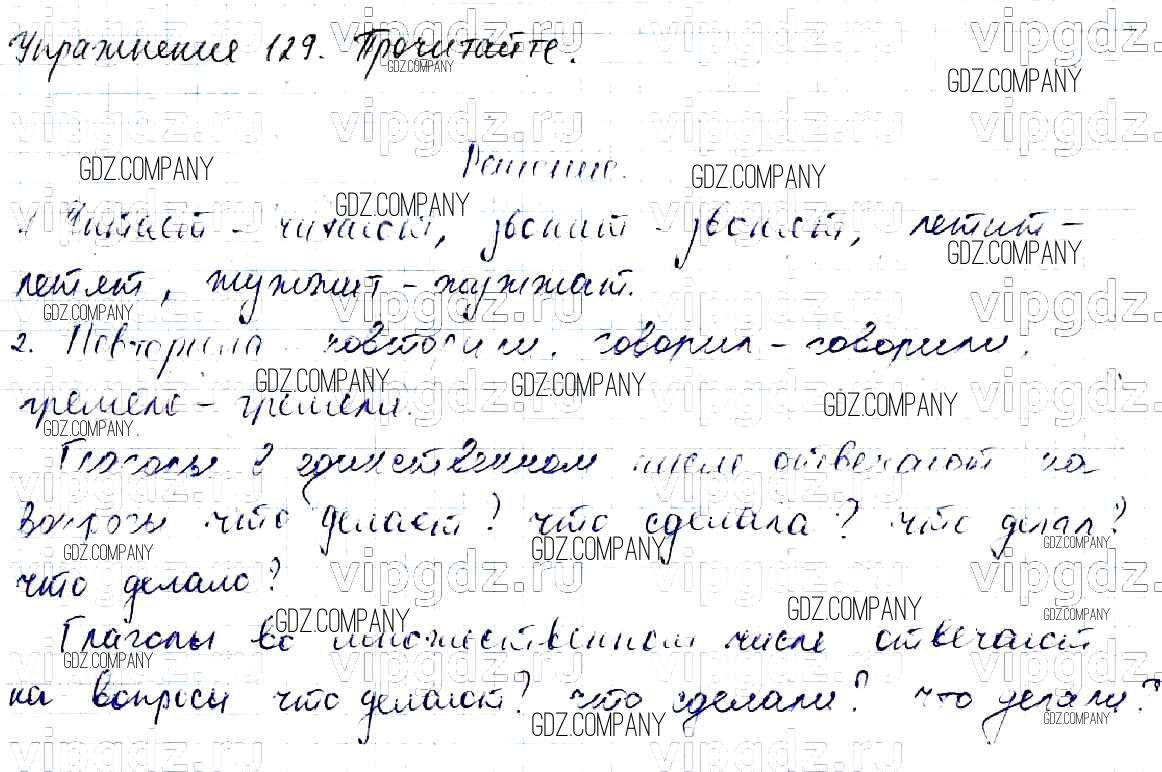 Упражнение 129. Прочитайте.
Решение.
1. Читает - читают, звонит - звонят, летит -
летят, жужжит - жужжат.
2. Повторила повторили, говорил - говорили,
гремело - гремели.
Глаголы в единственном числе отвечают на
вопросы что делает? что сделала? что делал?
что делало?
Глаголы во множественном числе отвечают
на вопросы что делают? что сделали? что делали?
vipgdz.ru
GDZ.COMPANY